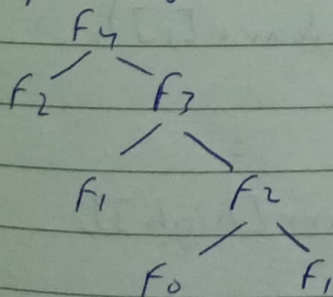 F4
F2 F3
F1 F2
F0 F1